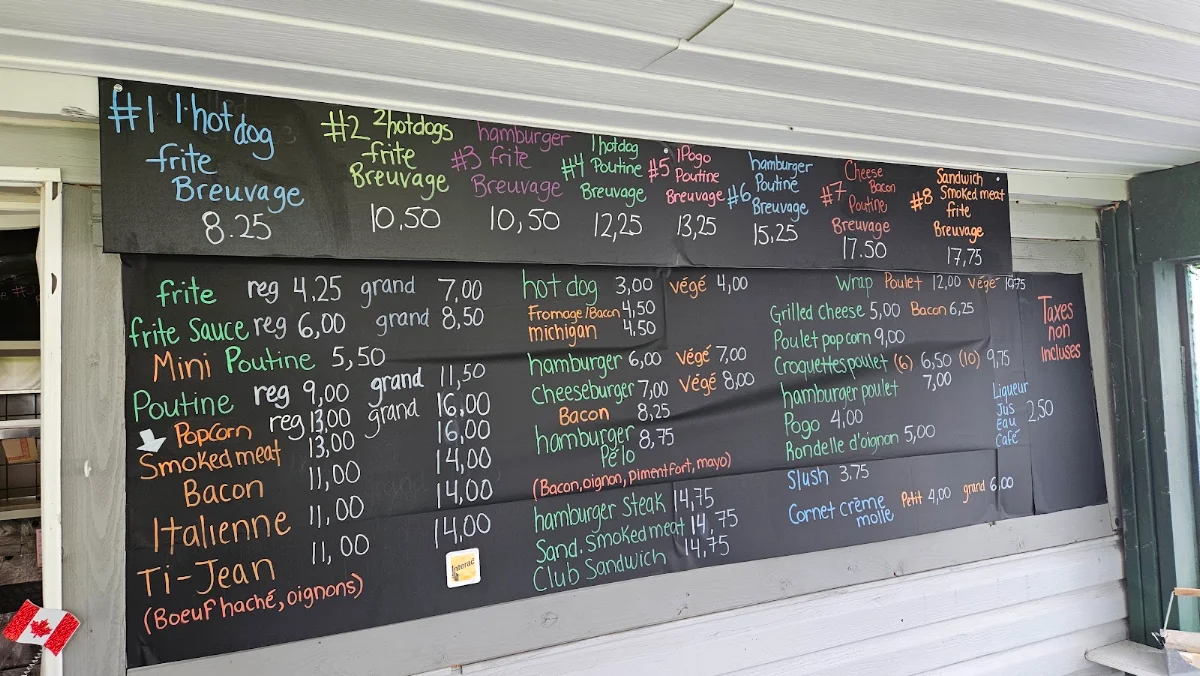 #1 1 hot dog
frite
Breuvage
8.25
#2 2 hotdogs
frite
Breuvage
10,50
hamburger
#3 frite
Breuvage
10,50
1 hotdog
#4 Poutine
Breuvage
12,25
1 Pogo
#5 Poutine
Breuvage
13,25
hamburger
Poutine
#6 Breuvage
15,25
Cheese
Bacon
#7 Poutine
Breuvage
17.50
Sandwich
#8 Smoked meat
frite
Breuvage
17,75
frite reg 4,25 grand 7,00
frite Sauce reg 6,00 grand 8,50
Mini Poutine 5,50
Poutine reg 9,00 grand 11,50
Popcorn reg 13,00 grand 16,00
Smoked meat 13,00 16,00
Bacon 11,00 14,00
Italienne 11,00 14,00
Ti-Jean 11,00 14,00
(Boeuf haché, oignons)
Interac
hot dog 3,00 végé 4,00
Fromage/Bacon 4,50
michigan 4,50
hamburger 6,00 végé 7,00
Cheeseburger 7,00 végé 8,00
Bacon 8,25
hamburger 8,75
Pélo
(Bacon, oignon, piment fort, mayo)
hamburger Steak 14,75
Sand. Smoked meat 14,75
Club Sandwich 14,75
Wrap Poulet 12,00 végé
Grilled Cheese 5,00 Bacon 6,25
Poulet popcorn 9,00
Croquettes poulet (6) 6,50 (10) 9,75
hamburger poulet 7,00
Pogo 4,00
Rondelle d'oignon 5,00
Slush 3.75
Cornet crème Petit 4,00 grand 6,00
molle
Taxes
non
incluses
Liqueur
Jus 2,50
Eau
Café